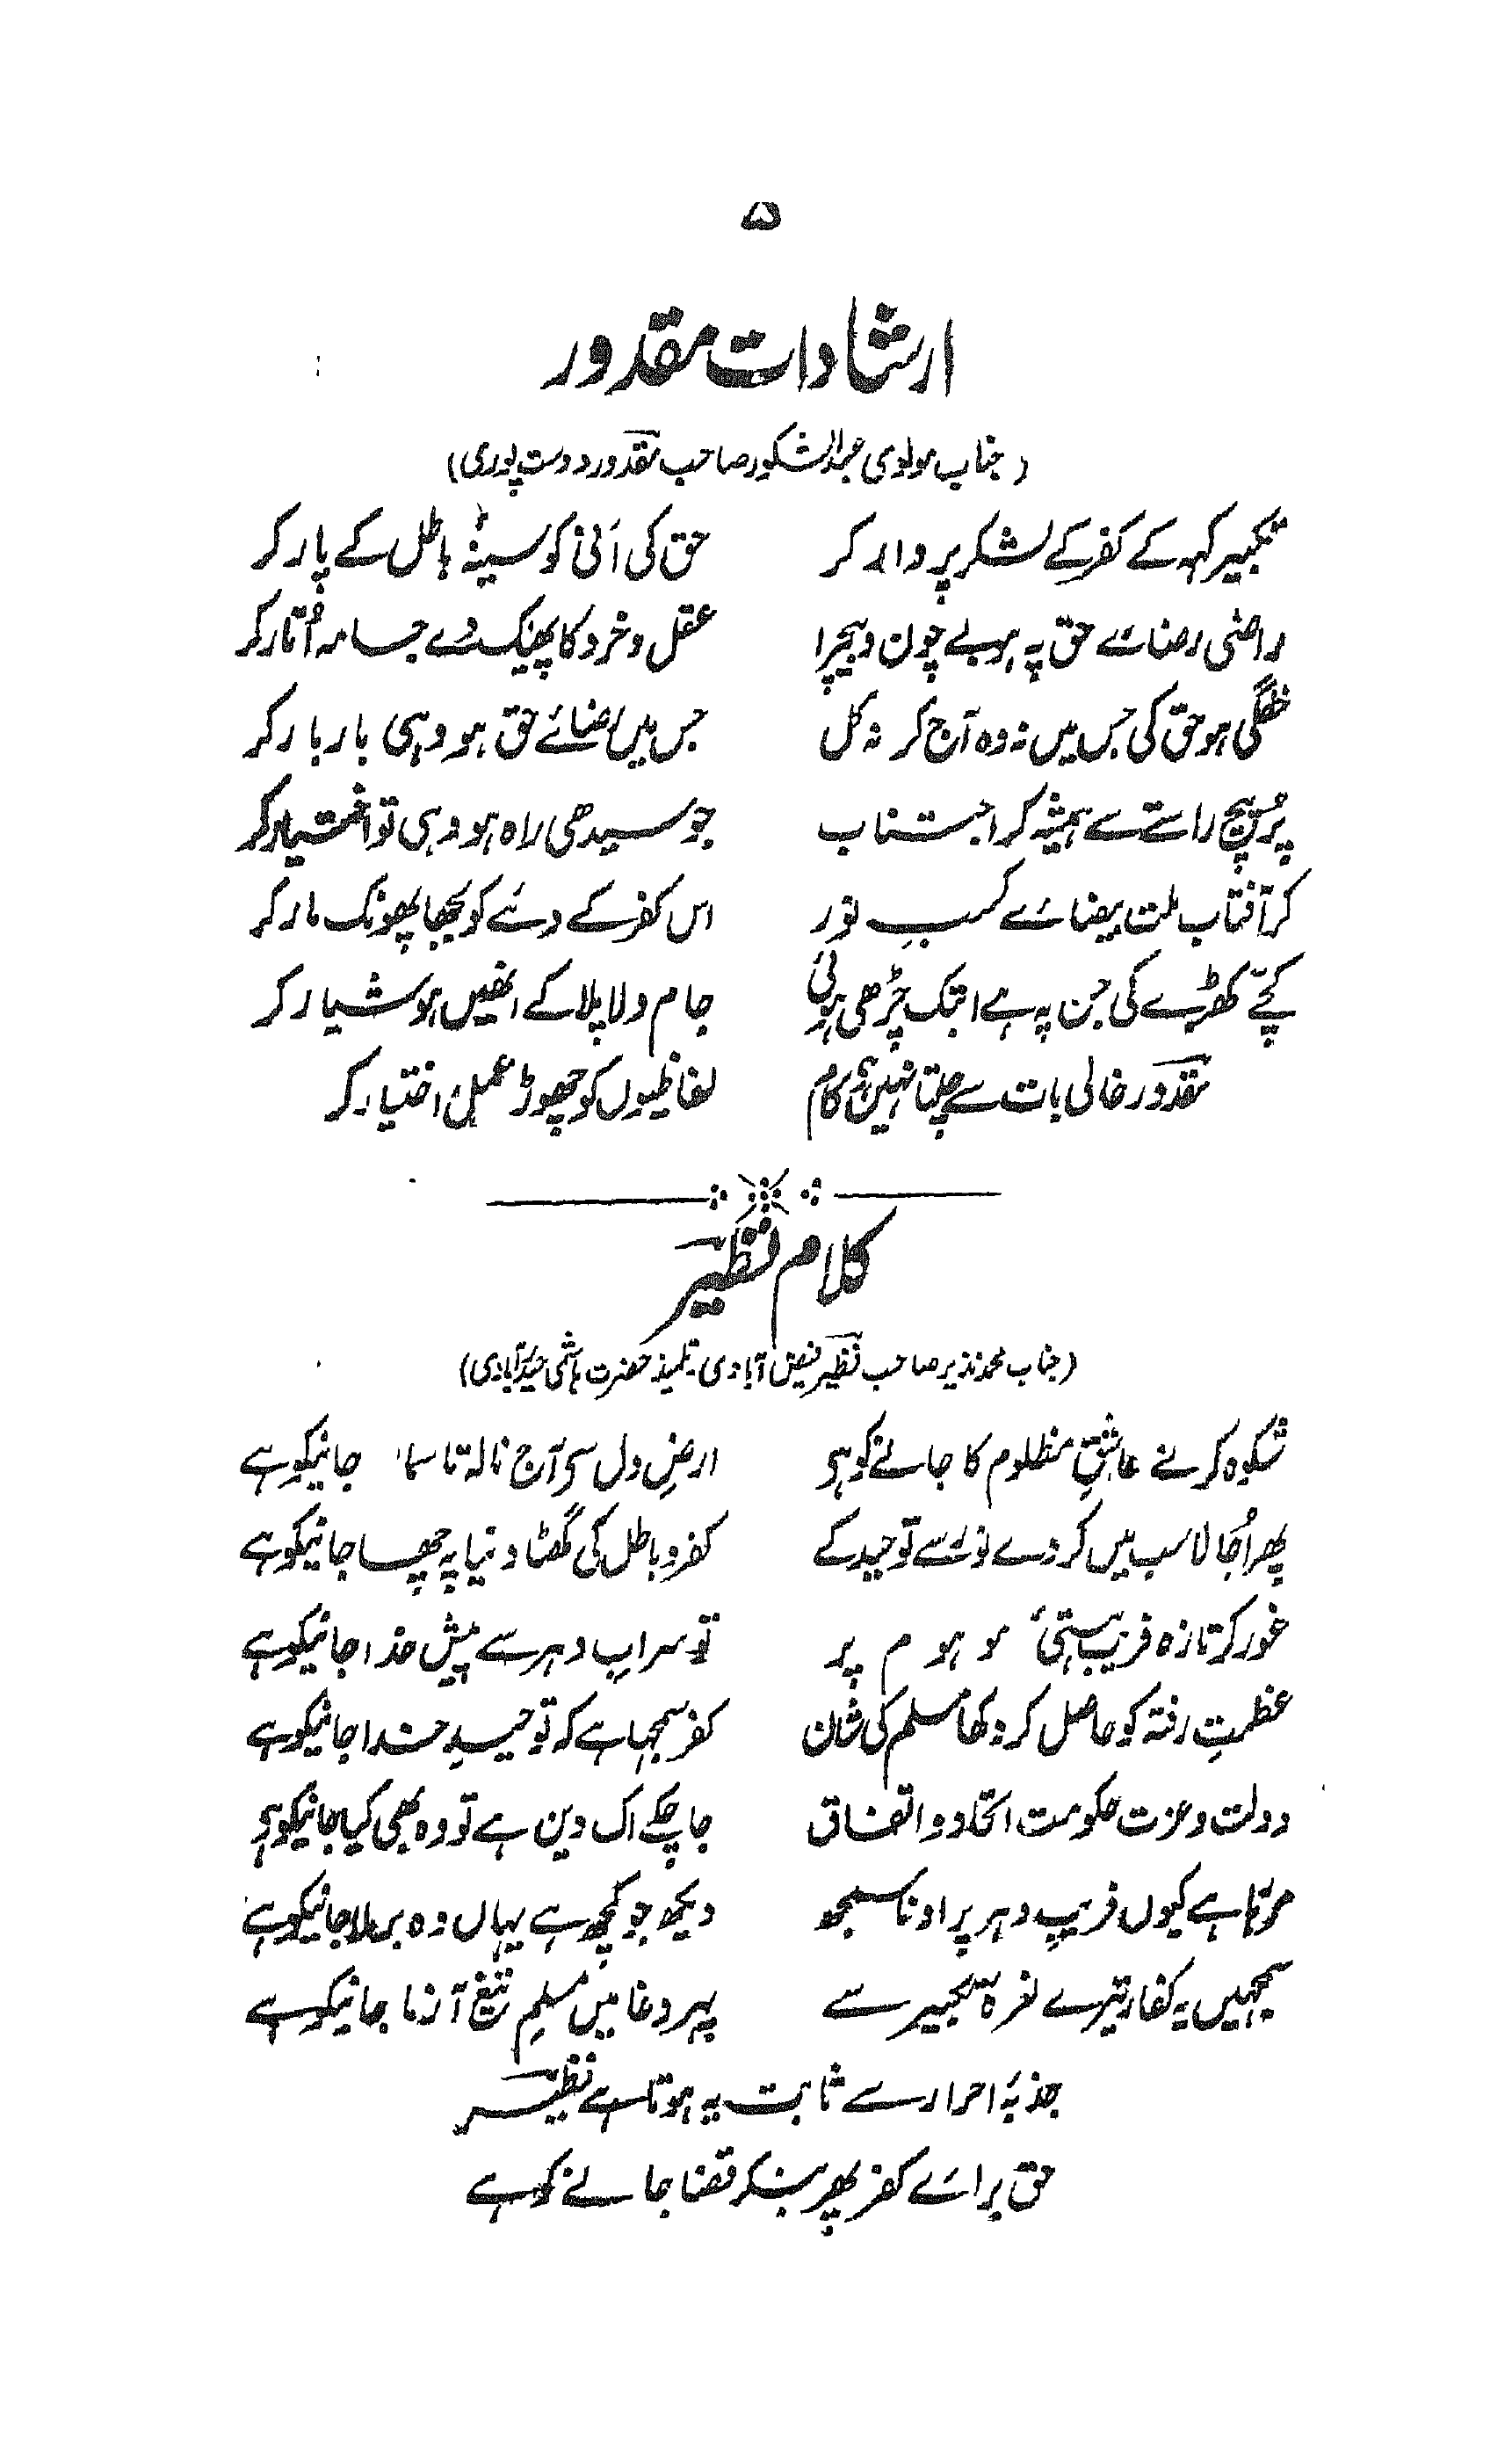 ۵
ارشادات مقدور
(جناب مولوی عبدالشکور صاحب مقدور دوست پوری)
تکبیر کہہ کے کفر کے لشکر پر وار کر حق کی اَنی کو سینۂ باطل کے پار کر
راضی رضائے حق پہ ہو بے چون و بیچرا عقل و خرد کا پھینک دے جامہ اُتار کر
خفگی ہو حق کی جس میں نہ وہ آج کر نہ کل جس میں رضائے حق ہو وہی بار بار کر
پُر پیچ راستے سے ہمیشہ کر اجتناب جو سیدھی راہ ہو وہی تو اختیار کر
کر آفتاب ملت بیضا سے کسبِ نور اس کفر کے دئے کو بجھا پھونک مار کر
کچّے گھڑے کی جن پہ ہے ابتک چڑھی ہوئی جام ولا پلا کے انھیں ہوشیار کر
مقدور خالی بات سے چلتا نہیں ہے کام لفاظیوں کو چھوڑ عمل اختیار کر
کلام نظیر
(جناب محمد نذیر صاحب نظیر فیض آبادی تلمیذ حضرت ہاشمی حیدرآبادی)
شکوہ کرنے عاشقِ مظلوم کا جانے کو ہے ارضِ دل سے آج نالہ تا سما جانیکو ہے
پھر اُجالا سب میں کر دے نور سے توحید کے کفر و باطل کی گھٹا دنیا پہ چھا جانیکو ہے
غور کر تازہ فریب ہستیٔ موہوم پر تو سرابِ دہر سے پیش خدا جانیکو ہے
عظمتِ رفتہ کو حاصل کر دکھا مسلم کی شان کفر سمجہا ہے کہ توحیدِ خدا جانیکو ہے
دولت و عزت حکومت اتحاد و اتفاق جا چکے اک دین ہے تو وہ بھی کیا جانیکو ہے
مرتا ہے کیوں فریبِ دہر پر او ناسمجھ دیکھ جو کچھ ہے یہاں وہ برملا جانیکو ہے
سمجہیں یہ کفار تیرے نعرۂ تکبیر سے پہر وغا میں مسلمِ تیغ آزما جانیکو ہے
جذبۂ احرار سے ثابت یہ ہوتا ہے نظیر
حق برائے کفر پھر بنکر قضا جانے کو ہے